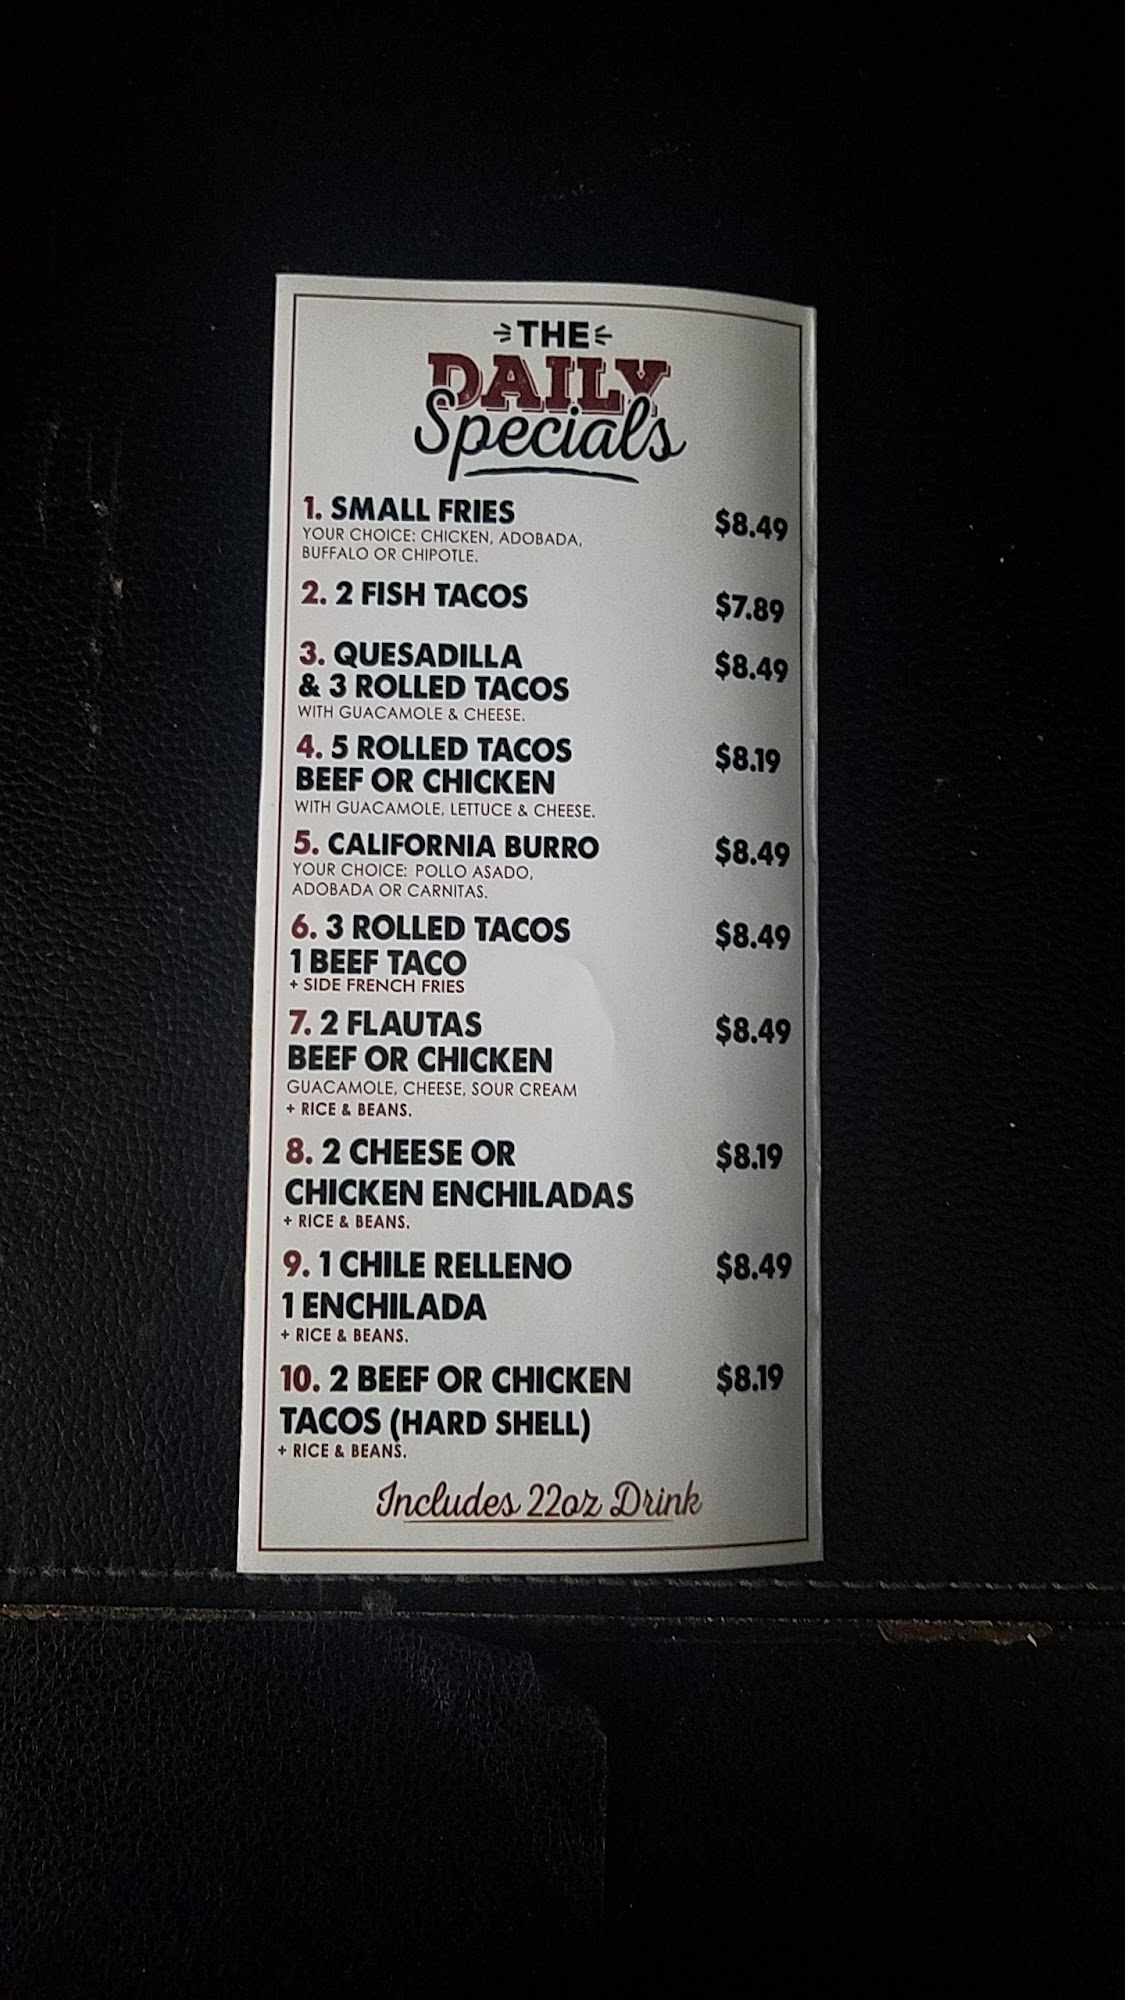 THE
DAILY
Specials
1. SMALL FRIES $8.49
YOUR CHOICE: CHICKEN, ADOBADA,
BUFFALO OR CHIPOTLE.
2. 2 FISH TACOS $7.89
3. QUESADILLA $8.49
& 3 ROLLED TACOS
WITH GUACAMOLE & CHEESE.
4. 5 ROLLED TACOS $8.19
BEEF OR CHICKEN
WITH GUACAMOLE, LETTUCE & CHEESE.
5. CALIFORNIA BURRO $8.49
YOUR CHOICE: POLLO ASADO,
ADOBADA OR CARNITAS.
6. 3 ROLLED TACOS $8.49
1 BEEF TACO
+ SIDE FRENCH FRIES
7. 2 FLAUTAS $8.49
BEEF OR CHICKEN
GUACAMOLE, CHEESE, SOUR CREAM
+ RICE & BEANS.
8. 2 CHEESE OR $8.19
CHICKEN ENCHILADAS
+ RICE & BEANS.
9. 1 CHILE RELLENO $8.49
1 ENCHILADA
+ RICE & BEANS.
10. 2 BEEF OR CHICKEN $8.19
TACOS (HARD SHELL)
+ RICE & BEANS.
Includes 22oz Drink